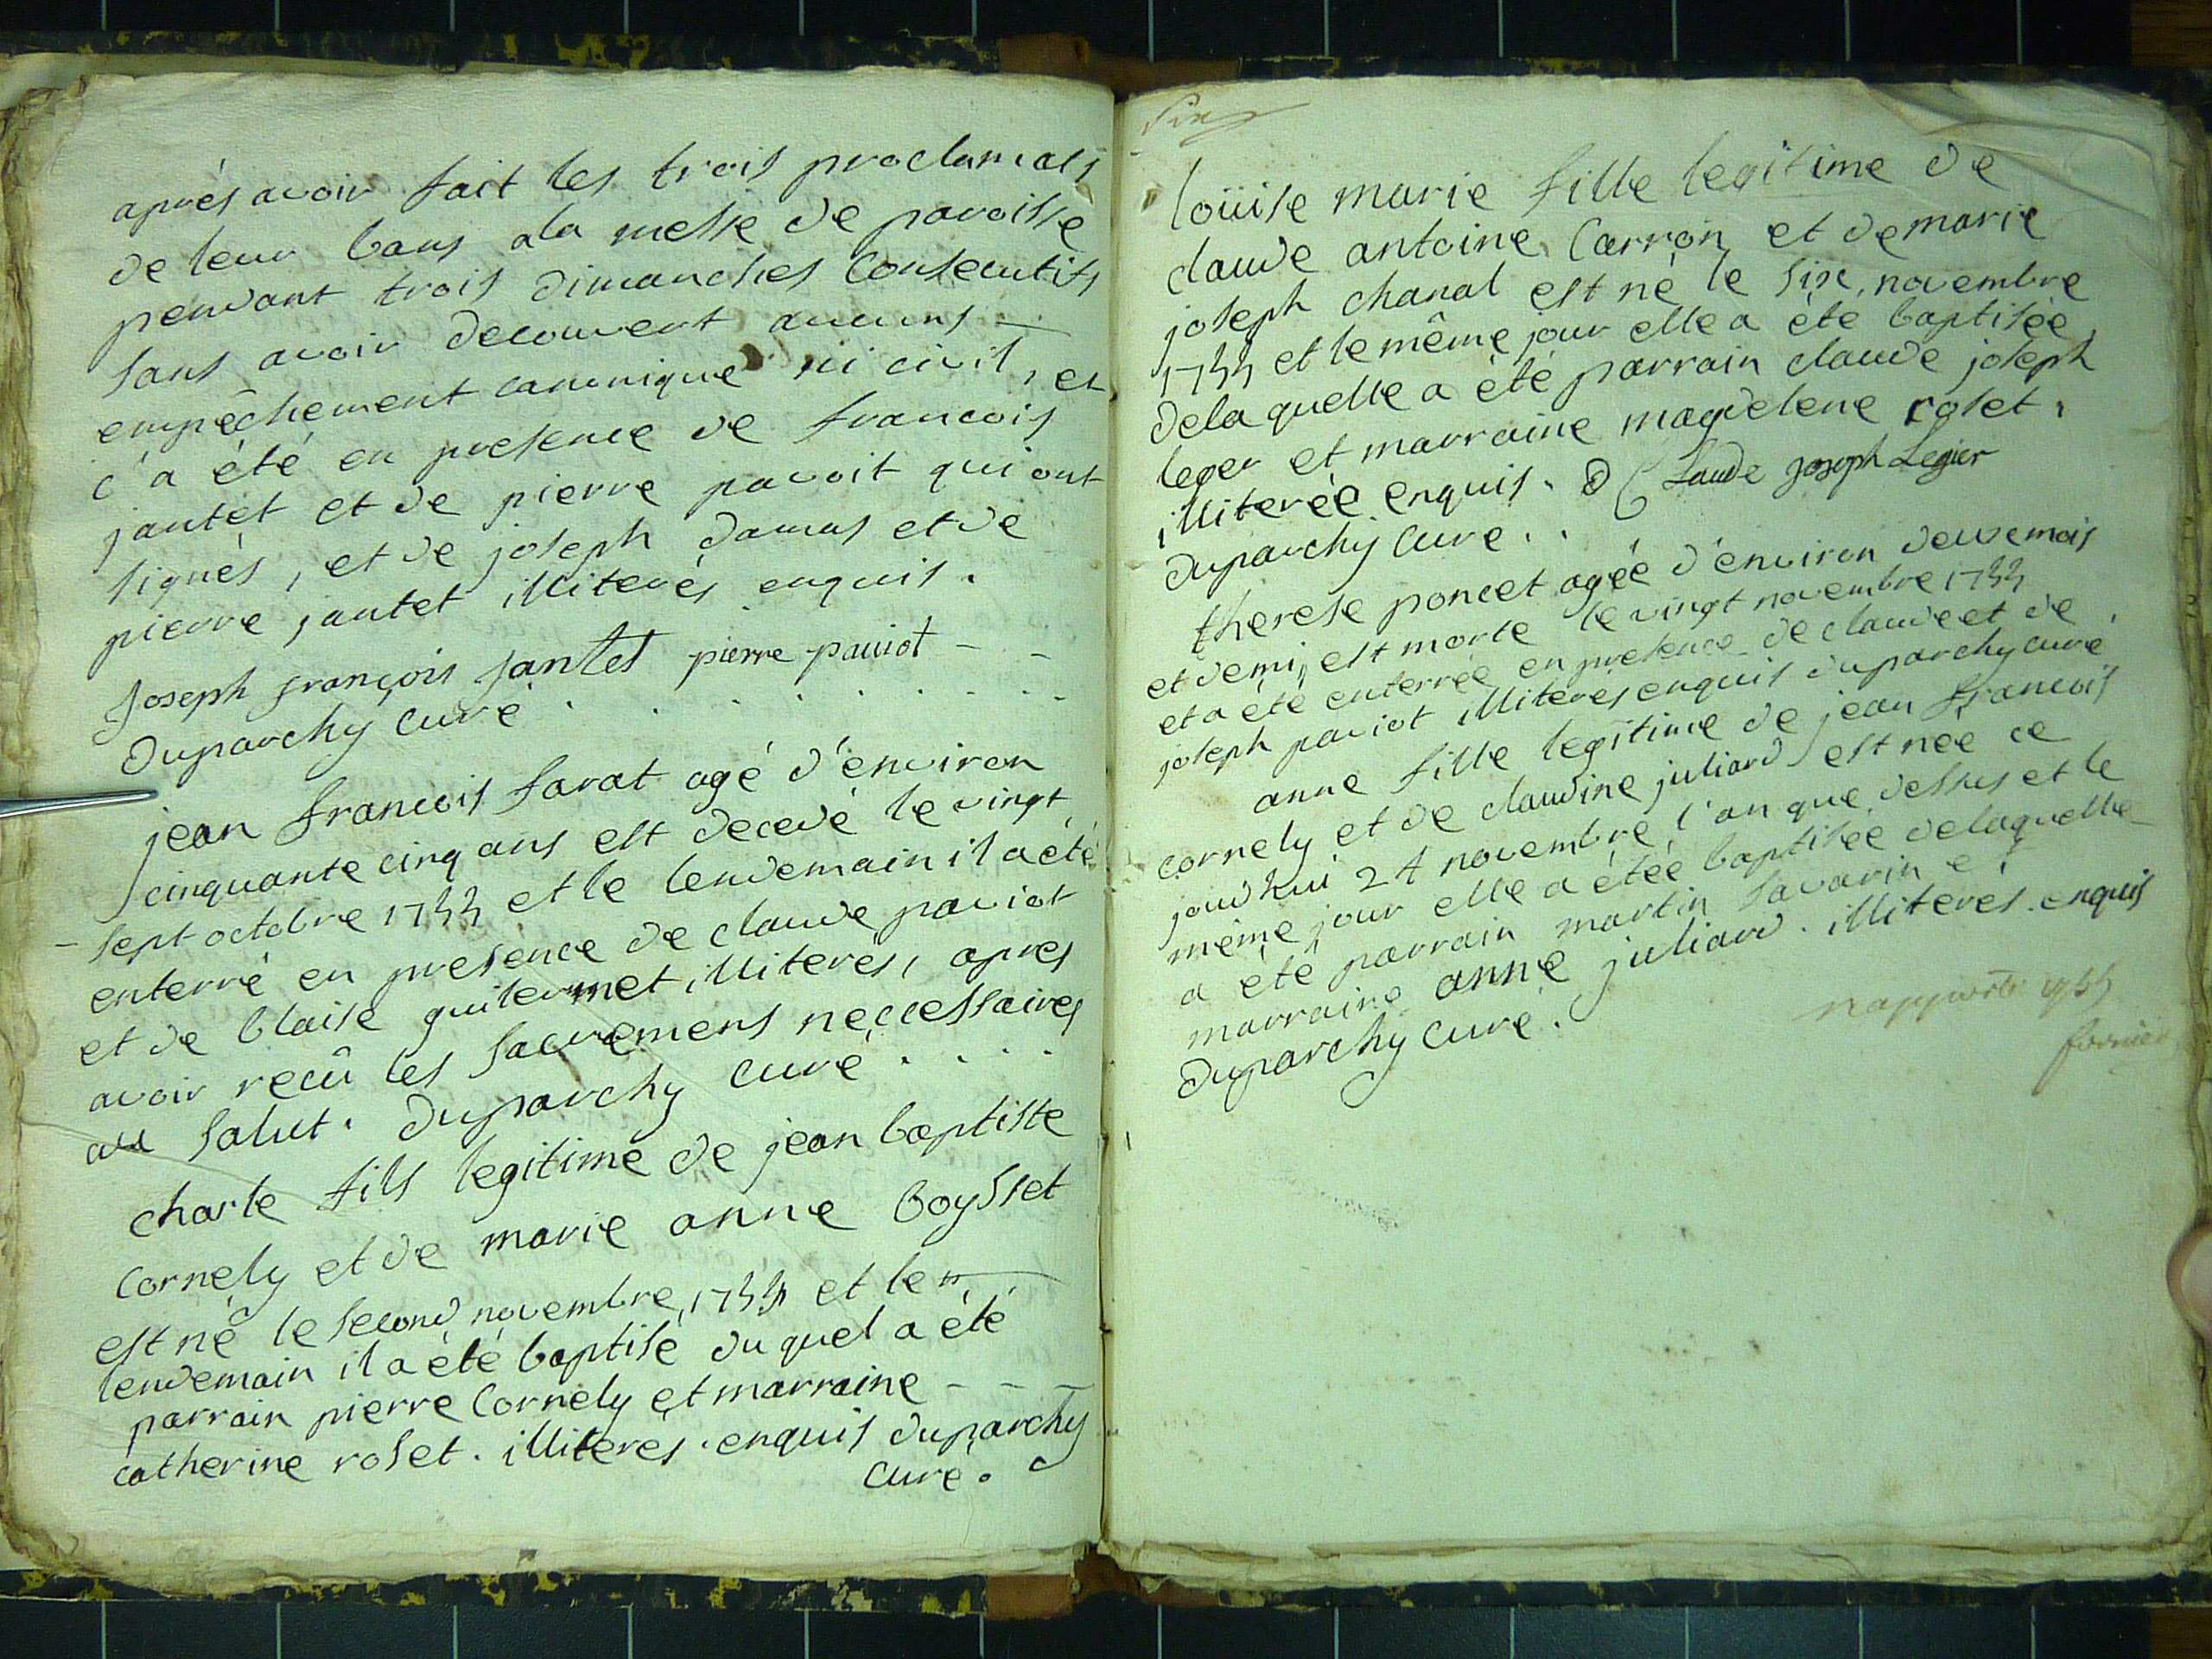 aprés avoir fait les trois proclamaõs
de leur bans a la messe de paroisse
pendant trois dimanches Consecutifs
sans avoir decouvert aucuns —
empêchement canonique ni civil, et
c'a été en presence de francois
jantet et de pierre paviot qui ont
signés, et de joseph damas et de
pierre jantet illiterés enquis.
Joseph françois Jantet pierre paviot - -
Duparchy curé . . . . . . . - -
jean francois favat agé d'environ
cinquante cinq ans est decedé le vingt
- sept octobre 1733 et le lendemain il a été
enterré en presence de claude paviot
et de blaise guilermet illiterés, apres
avoir reçû les sacremens neccessaires
au salut. Duparchy curé . . . .
charle fils legitime de jean baptiste
Cornely et de marie anne boysset
est né le second novembre 1733 et le
lendemain il a été baptisé duquel a été
parrain pierre Cornely et marraine - - -
catherine roset. illiterés enquis duparchy
Curé.
loüise marie fille legitime de
claude antoine Carron et de marie
joseph chanal est né le six novembre
1733 et le même jour elle a été baptisée
de la quelle a été parrain claude joseph
leger et marraine magdelene roset.
illiterée enquis. Claude Joseph Legier
Duparchy Cure . .
therese poncet agée d'environ deux mois
et demi, est morte le vingt novembre 1733
et a été enterrée en presence de claude et de
joseph paviot illiterés enquis duparchy curé
anne fille legitime de jean francois
cornely et de claudine juliard est née ce
jourd'hui 24 novembre l'an que dessus et le
même jour elle a étée baptisée de laquelle
a été parrain martin savarin et
marraine anne juliard. illiterés enquis
Duparchy Curé.